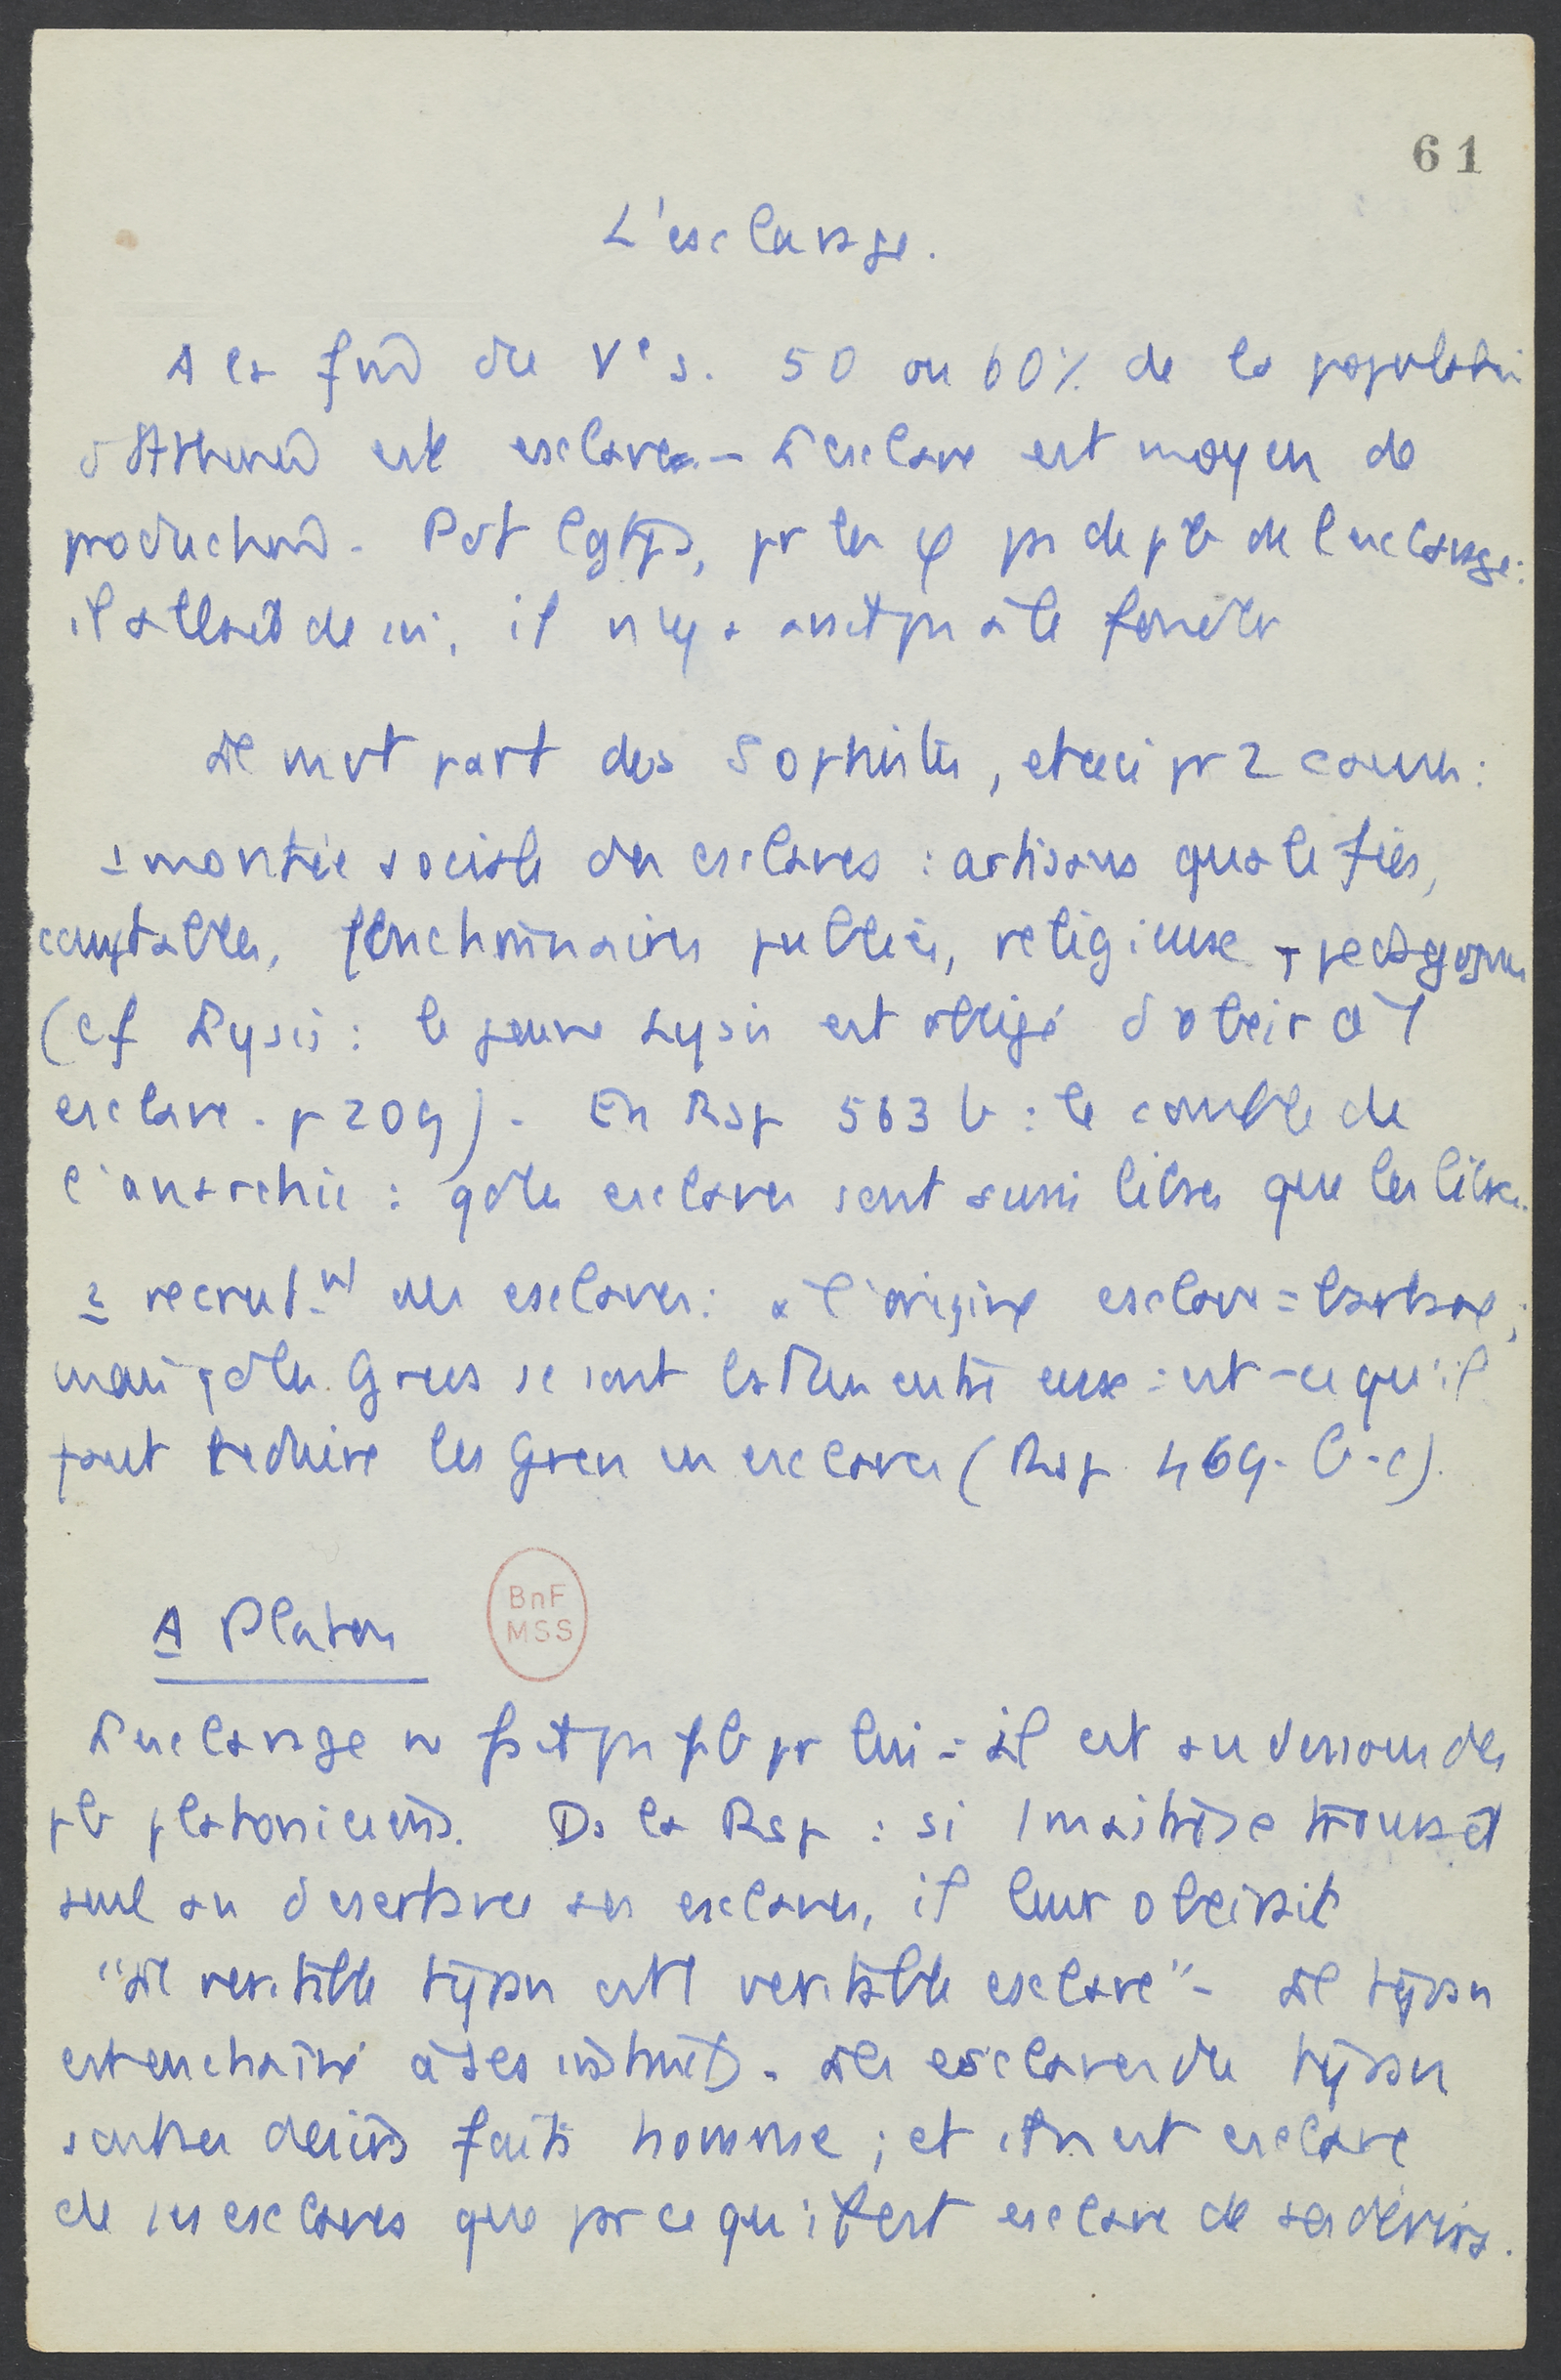 61
L'esclavage.
A la fin du Ve s. 50 ou 60% de la population
d'Athènes est esclave - L'esclave est moyen de
production. Pdt lgtps, pr les φ pas de pb de l'esclavage :
il allait de soi, il n'y a avait pas à le fonder
Le mvt part des Sophistes, et ceci pr 2 causes :
1 montée sociale des esclaves : artisans qualifiés,
comptables, fonctionnaires publics, religieux + pedagogues
(cf Lysis : le jeune Lysis est obligé d'obeir à 1
esclave . p 209) . En Rep 563 b : le comble de
l'anarchie : qd les esclaves sont aussi libres que les libres.
2 recrut.nt des esclaves : à l'origine esclave = barbare ;
mais qd les Grecs se sont battus entre eux : est-ce qu'il
faut reduire les Grecs en esclaves (Rep 469. b-c).
A Platon
BnF
MSS
L'esclavage ne fait pas pb pr lui : il est au dessous des
pb platoniciens. Ds la Rep : si 1 maitre se trouvait
seul au desert avec ses esclaves, il leur obeirait
"Le veritable tyran est 1 veritable esclave" - Le tyran
est enchainé à ses instincts . Les esclaves du tyran
sont ses desirs faits homme ; et il n'est esclave
de ses esclaves que parce qu'il est esclave de ses désirs.